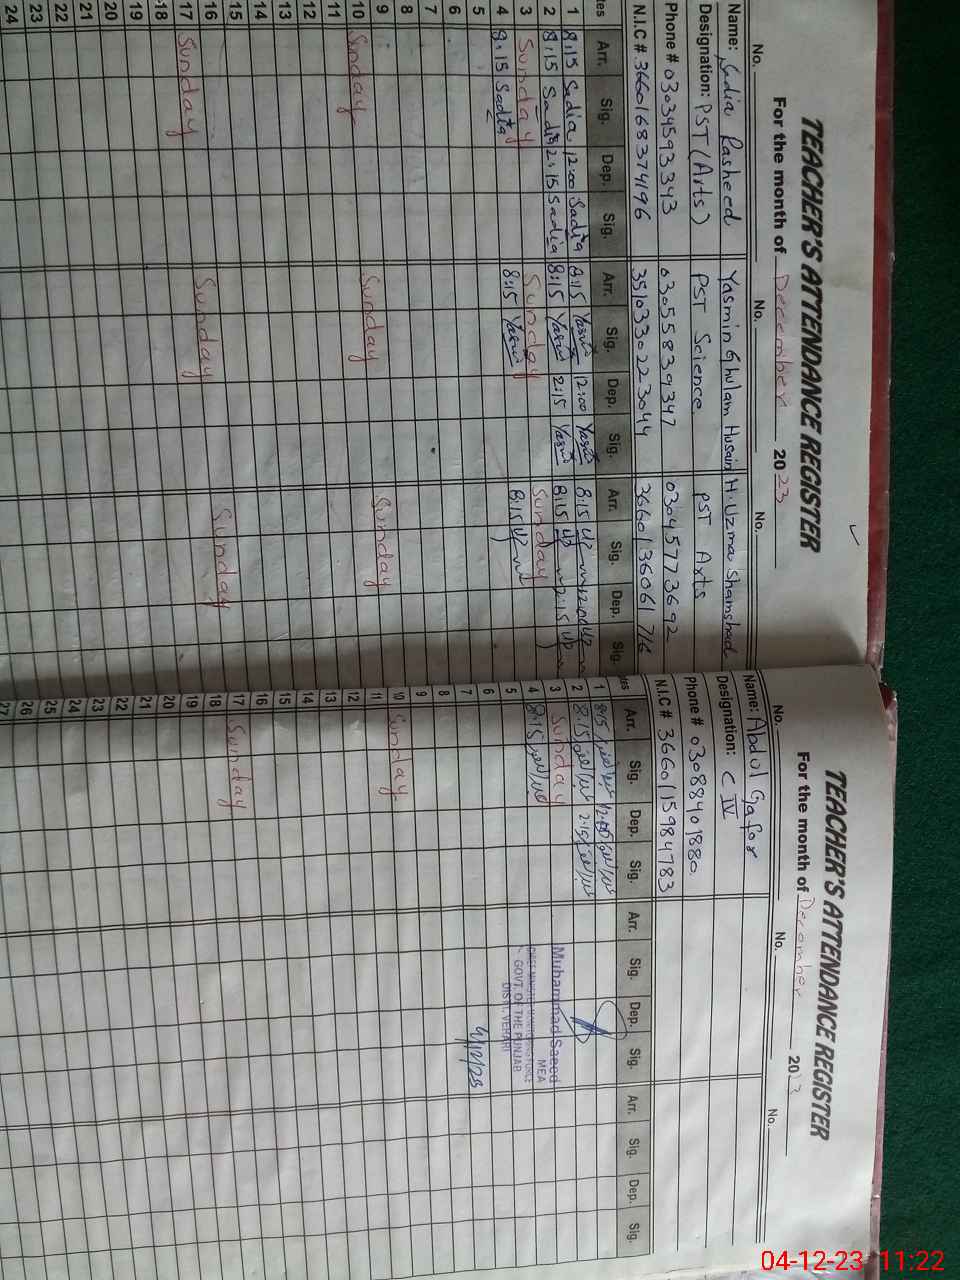 TEACHER'S ATTENDANCE REGISTER
For the month of December 2023
No. No. No.
Name: Sadia Rasheed Yasmin Ghulam Husain H. Uzma Shamshad
Designation: PST (Arts) PST Science PST Arts
Phone # 03034593343 03055839347 03045773692
N.I.C # 3660168374196 3510330223044 3660136061716
Arr. Sig. Dep. Sig. Arr. Sig. Dep. Sig. Arr. Sig. Dep. Sig.
1 8:15 Sadia 12:00 Sadia 8:15 Yasmin 12:00 Yasmin 8:15 12:00
2 8:15 Sadia 2:15 Sadia 8:15 Yasmin 2:15 Yasmin 8:15 2:15
3 Sunday Sunday Sunday
4 8:15 Sadia 8:15 Yasmin 8:15
5
6
7
8
9
10 Sunday Sunday Sunday
11
12
13
14
15
16
17 Sunday Sunday Sunday
18
19
20
21
22
23
24
TEACHER'S ATTENDANCE REGISTER
For the month of December 2023
No. No. No.
Name: Abdul Gafor
Designation: C IV
Phone # 03088401880
N.I.C # 3660115984783
Arr. Sig. Dep. Sig. Arr. Sig. Dep. Sig. Arr. Sig. Dep. Sig.
1 8:15 12:00
2 8:15 2:15
3 Sunday
4 8:15
5
6
7
8
9
10 Sunday
11
12
13
14
15
16
17 Sunday
18
19
20
21
22
23
24
25
26
27
Muhammad Saeed
MEA
CHIEF MINISTER MONITORING FORCE
GOVT. OF THE PUNJAB
DISTT. VEHARI
4/12/23
04-12-23 11:22